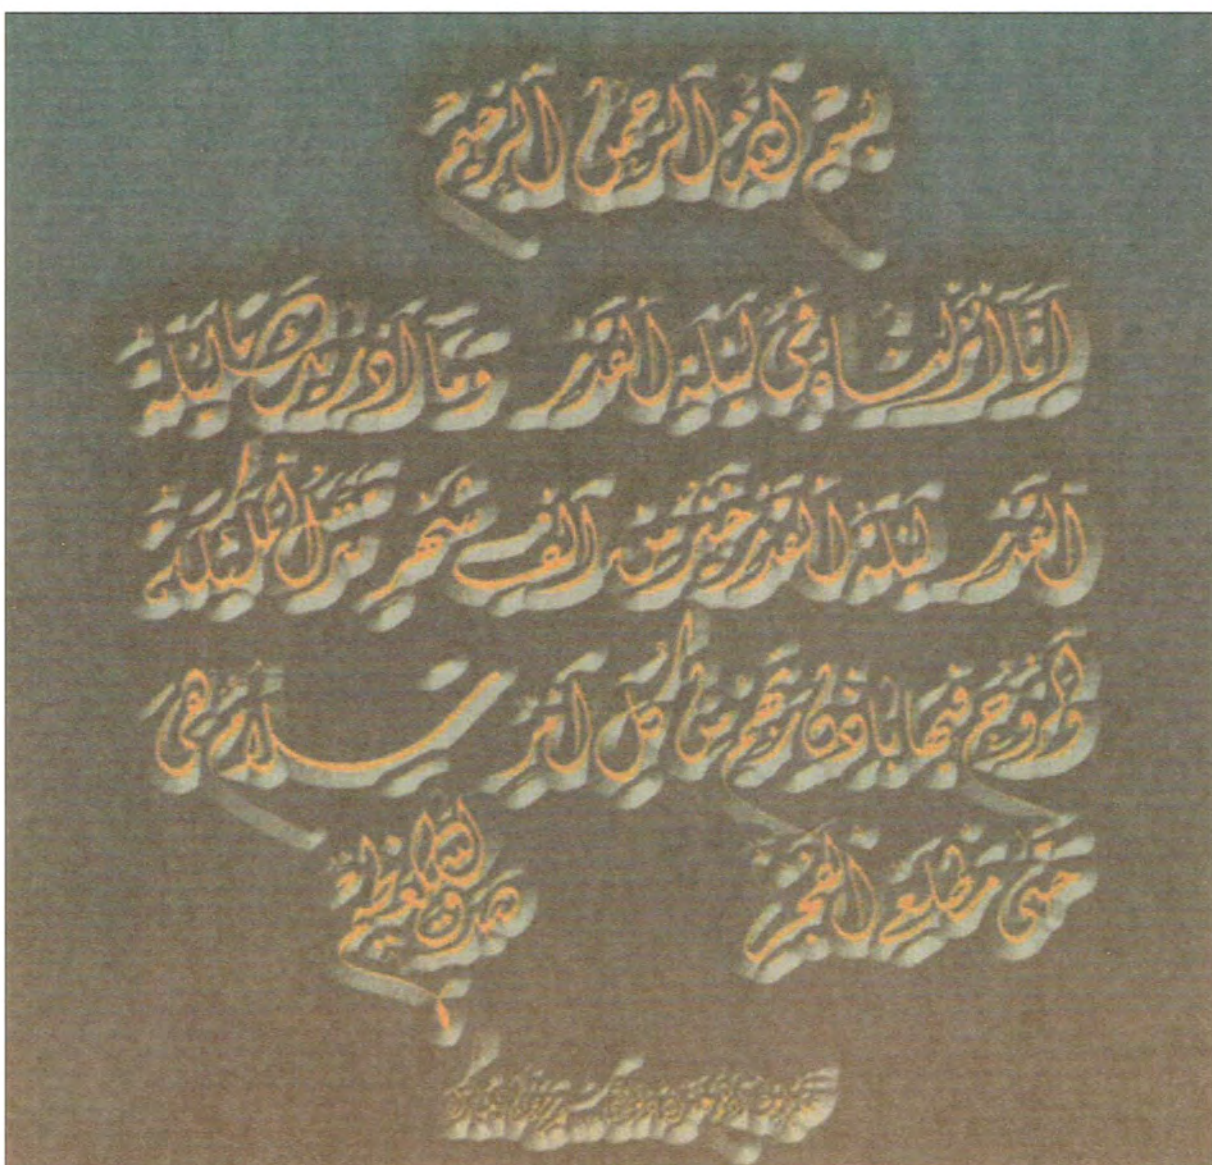 بسم الله الرحمن الرحيم
انا انزلناه في ليلة القدر وما ادريك ما ليلة
القدر ليلة القدر خير من الف شهر تنزل الملئكة
والروح فيها باذن ربهم من كل امر سلام هي
حتى مطلع الفجر صدق الله العظيم